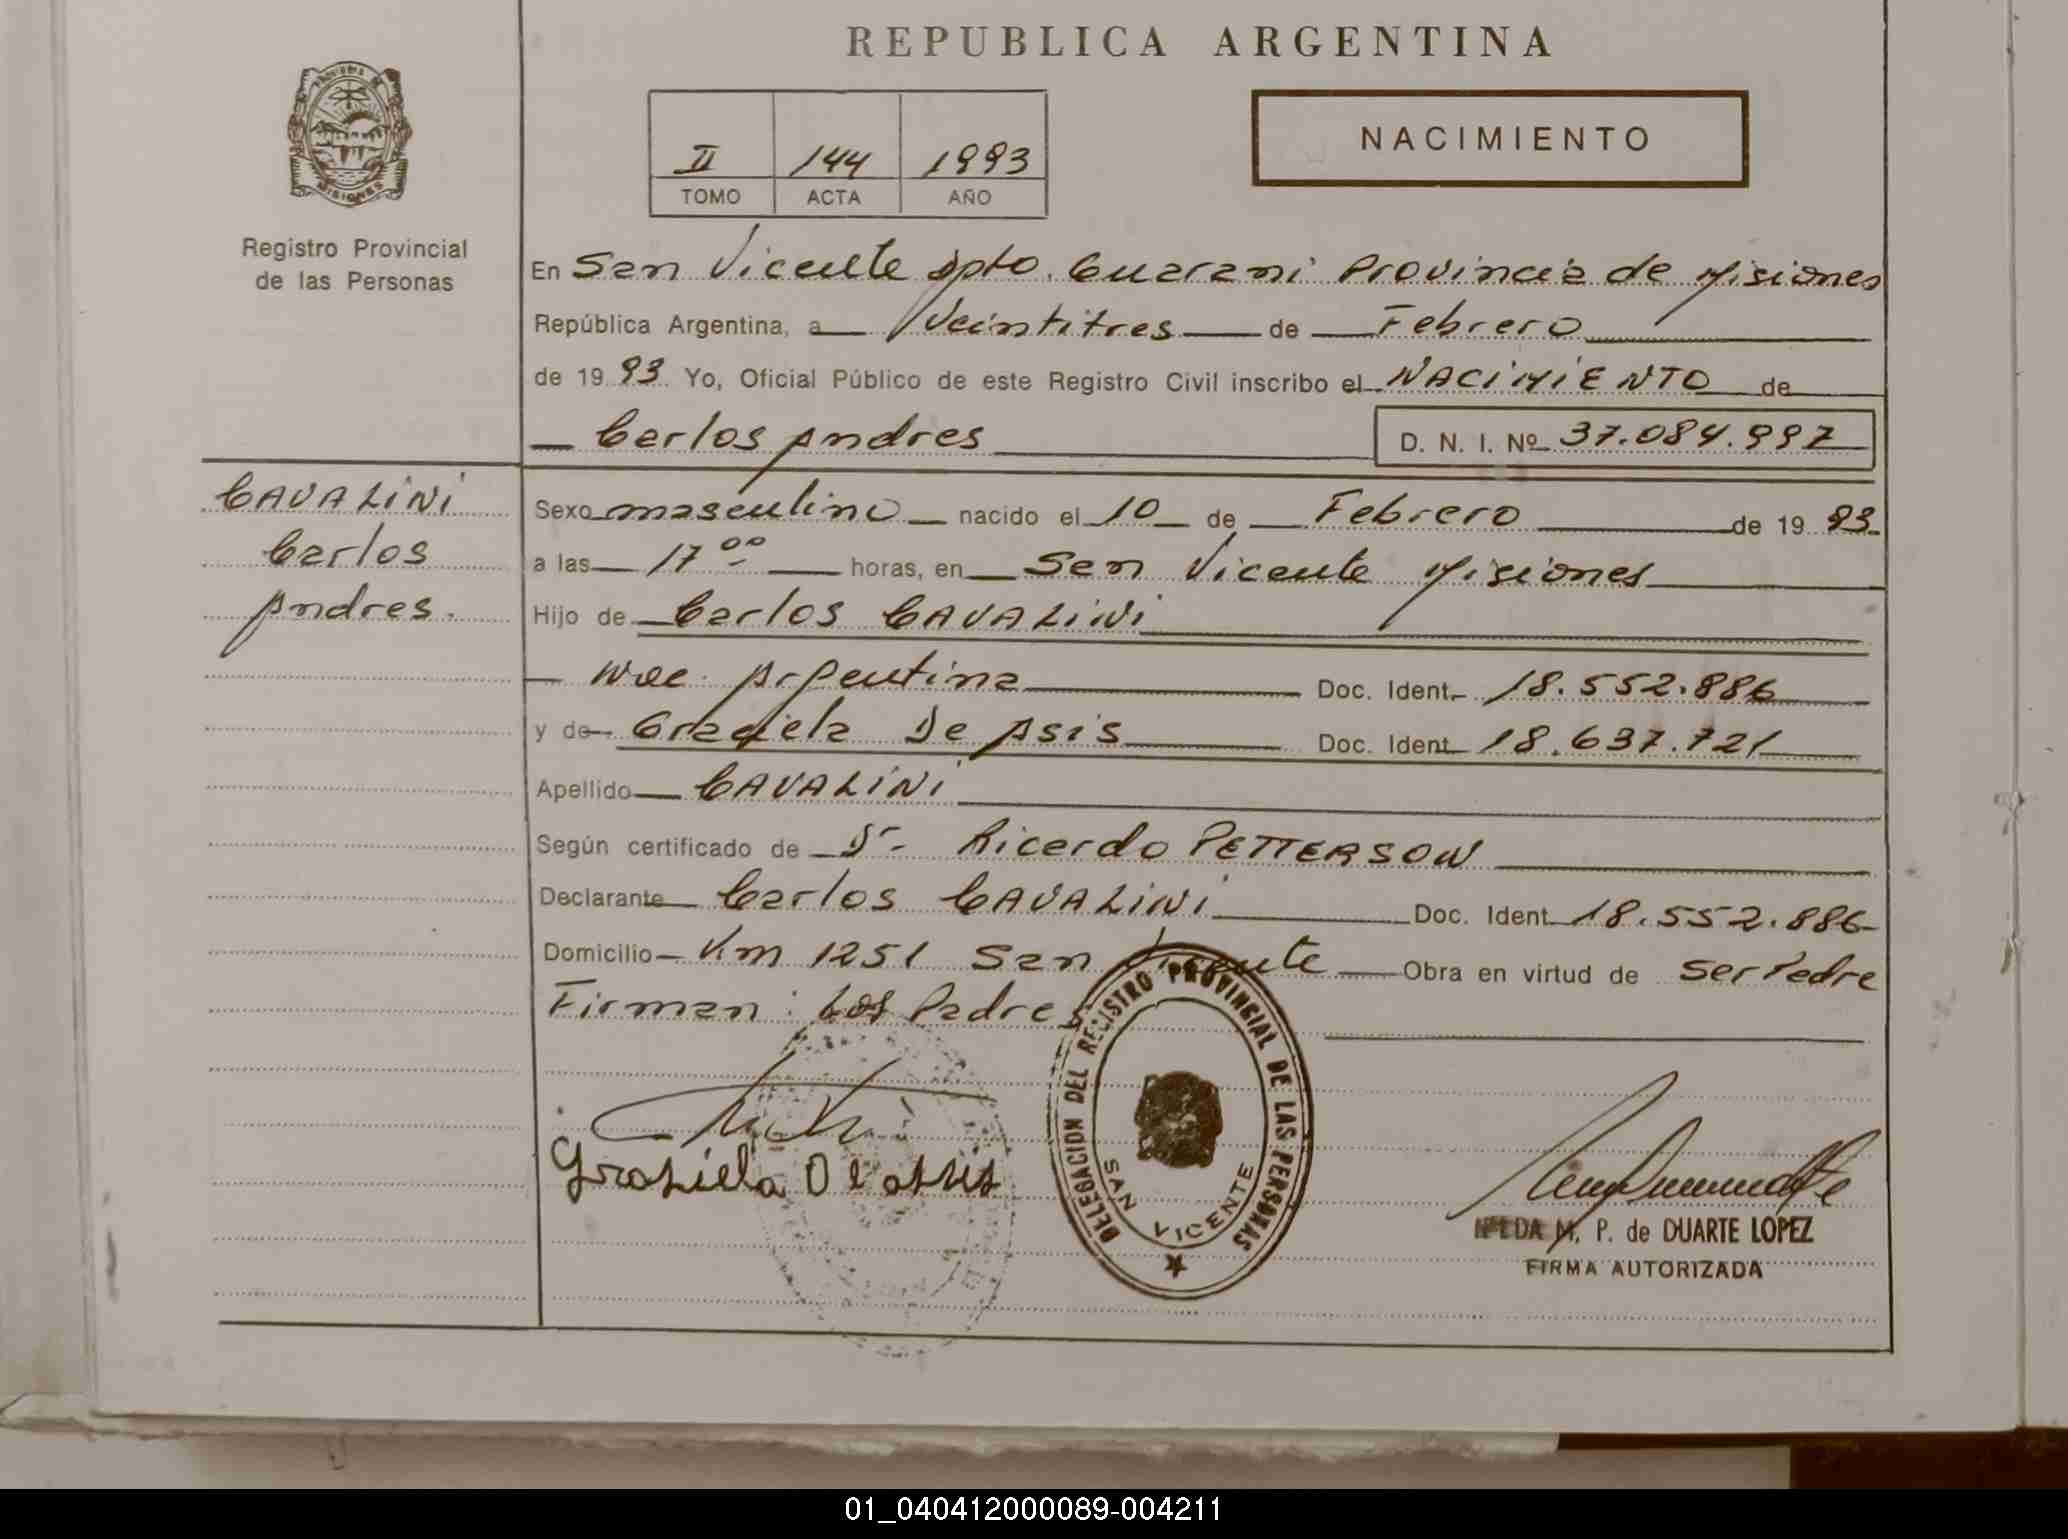 REPUBLICA ARGENTINA
NACIMIENTO
II 144 1993
TOMO ACTA AÑO
MISIONES
Registro Provincial
de las Personas
En San Vicente Dpto. Guarani Provincia de Misiones
República Argentina, a Veintitres de Febrero
de 1993 Yo, Oficial Público de este Registro Civil inscribo el NACIMIENTO de
Carlos Andres D. N. I. Nº 37.084.997
CAVALINI
Carlos
Andres.
Sexo masculino nacido el 10 de Febrero de 1993
a las 17 00 horas, en San Vicente Misiones
Hijo de Carlos CAVALINI
Nac. Argentina Doc. Ident. 18.552.886
y de Graciela De Asis Doc. Ident. 18.637.721
Apellido CAVALINI
Según certificado de Dr. Ricardo PETTERSON
Declarante Carlos CAVALINI Doc. Ident. 18.552.886
Domicilio Km 1251 San Vicente Obra en virtud de ser Padre
Firman: Los Padres
DELEGACION DEL REGISTRO PROVINCIAL DE LAS PERSONAS
SAN VICENTE
M. P. de DUARTE LOPEZ
FIRMA AUTORIZADA
01_040412000089-004211